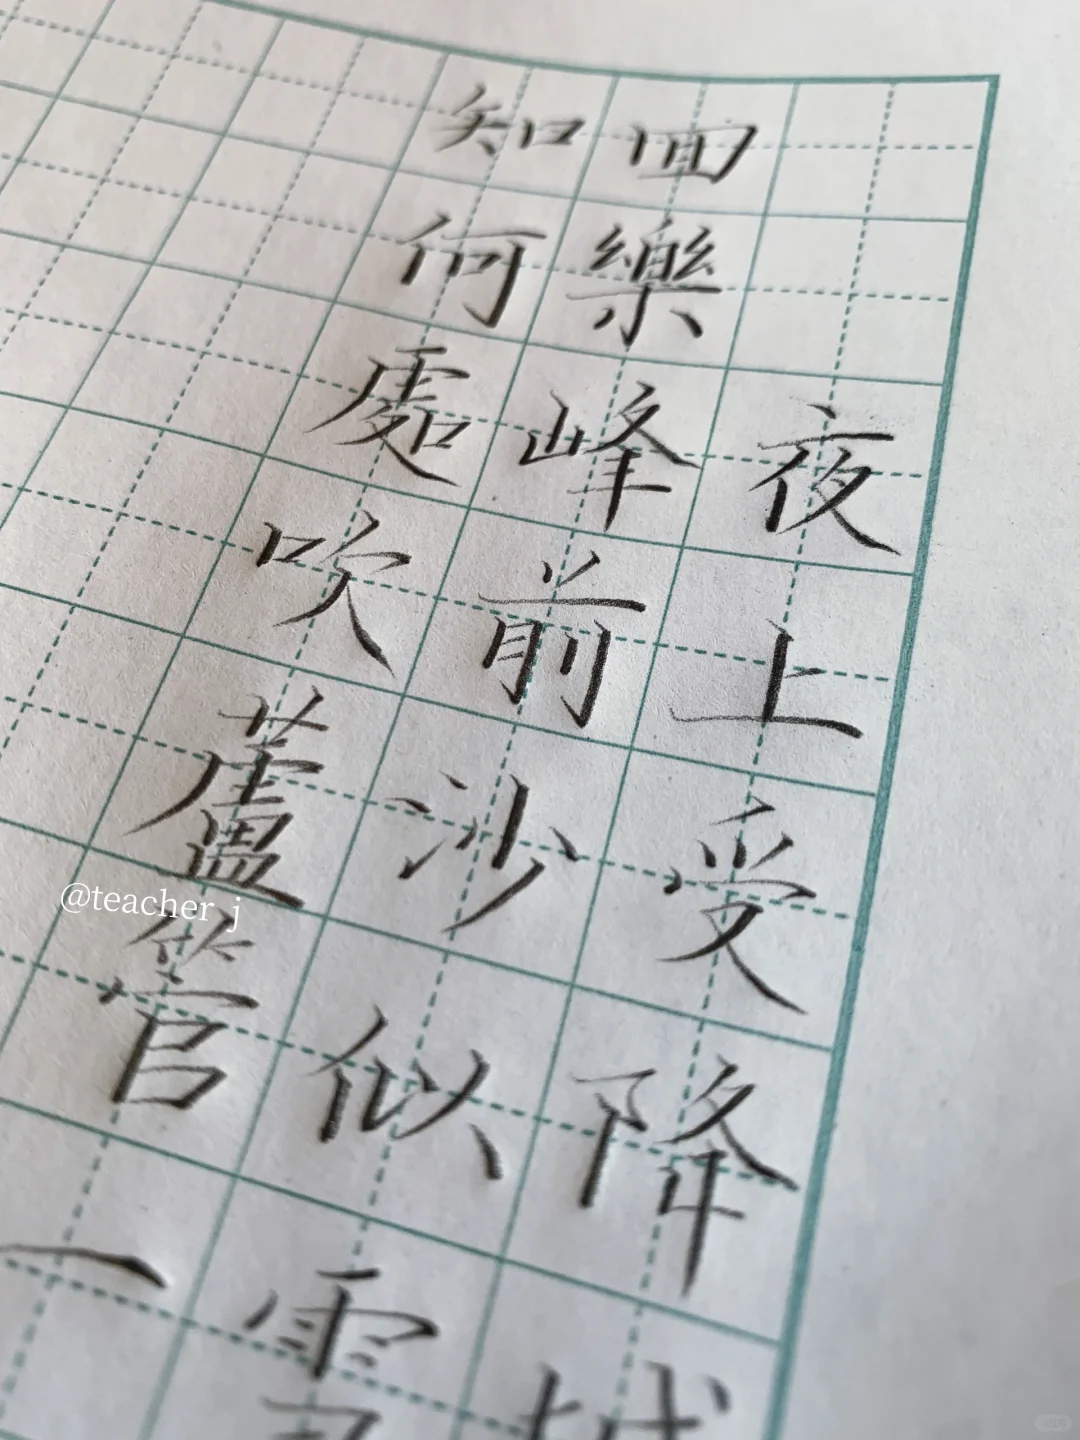 夜上受降城
回樂峰前沙似雪
知何處吹蘆管一
@teacher j